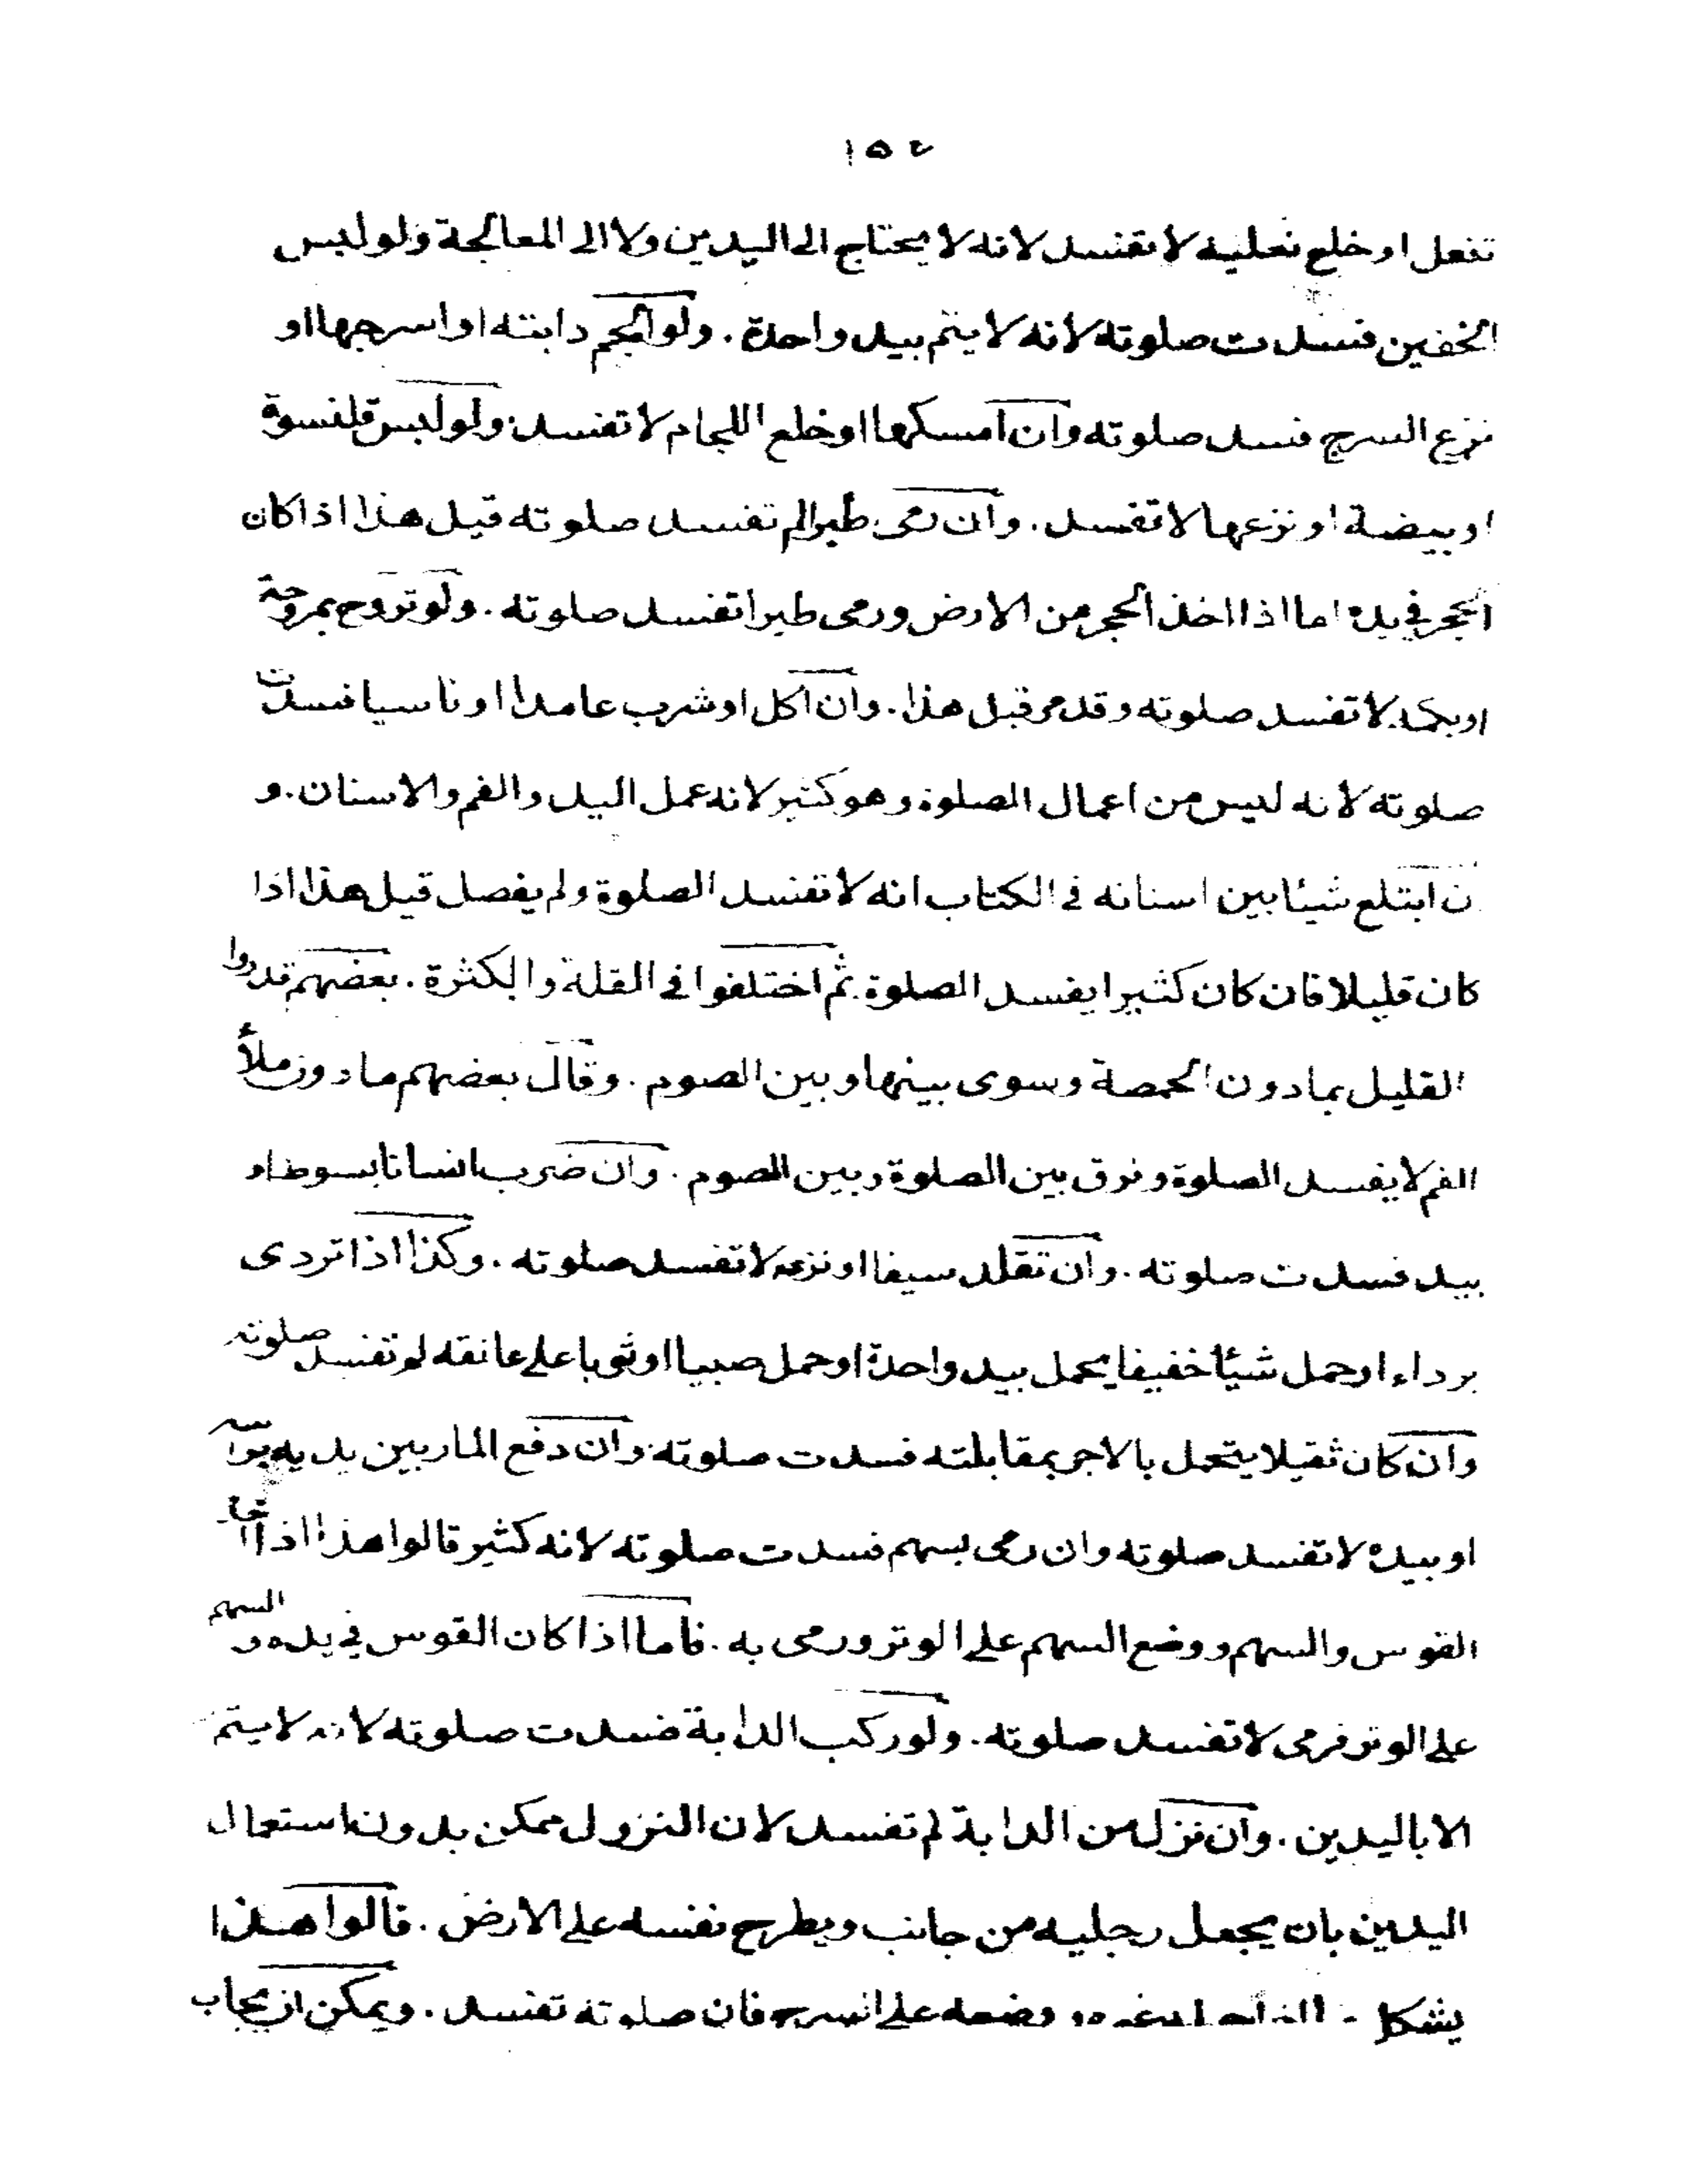 ١٥٤
تنعل او خلع نعليه لا تفسد لانه لا يحتاج الى اليدين ولا الى المعالجة ولو لبس
الخفين فسدت صلوته لانه لا يتم بيد واحدة . ولو الجم دابته او اسرجها او
نزع السرج فسد صلوته وان امسكها او خلع اللجام لا تفسد . ولو لبس قلنسوة
او بيضة او نزعها لا تفسد . وان رمى طيرا لم تفسد صلوته قيل هذا اذا كان
الحجر في يده اما اذا اخذ الحجر من الارض ورمى طيرا تفسد صلوته . ولو تروح بمروحة
او بكمه لا تفسد صلوته وقد مر قبل هذا . وان اكل او شرب عامدا او ناسيا فسدت
صلوته لانه ليس من اعمال الصلوة وهو كثير لانه عمل اليد والفم والاسنان . و
ن ابتلع شيئا بين اسنانه في الكتاب انه لا تفسد الصلوة ولم يفصل قيل هذا اذا
كان قليلا فان كان كثيرا يفسد الصلوة ثم اختلفوا في القلة والكثرة . بعضهم قدروا
القليل بما دون الحمصة وسوى بينها وبين الصوم . وقال بعضهم ما دون ملأ
الفم لا يفسد الصلوة وفرق بين الصلوة وبين الصوم . وان ضرب انسانا بسوط او
بيد فسدت صلوته . وان تقلد سيفا او نزعه لا تفسد صلوته . وكذا اذا تردى
برداء او حمل شيئا خفيفا يحمل بيد واحدة او حمل صبيا او ثوبا على عاتقه لم تفسد صلوته
وان كان ثقيلا يتحمل بالاجر بمقابلته فسدت صلوته . وان دفع المار بين يديه براسه
او بيده لا تفسد صلوته وان رمى بسهم فسدت صلوته لانه كثير قالوا هذا اذا اخذ
القوس والسهم ووضع السهم على الوتر ورمى به . فاما اذا كان القوس في يده و السهم
على الوتر فرمى لا تفسد صلوته . ولو ركب الدابة فسدت صلوته لانه لا يتم
الا باليدين . وان نزل من الدابة لم تفسد لان النزول ممكن بدون استعمال
اليدين بان يجعل رجليه من جانب ويطرح نفسه على الارض . قالوا هذا
يشكل وضعه على السرج فان صلوته تفسد . ويمكن ان يجاب